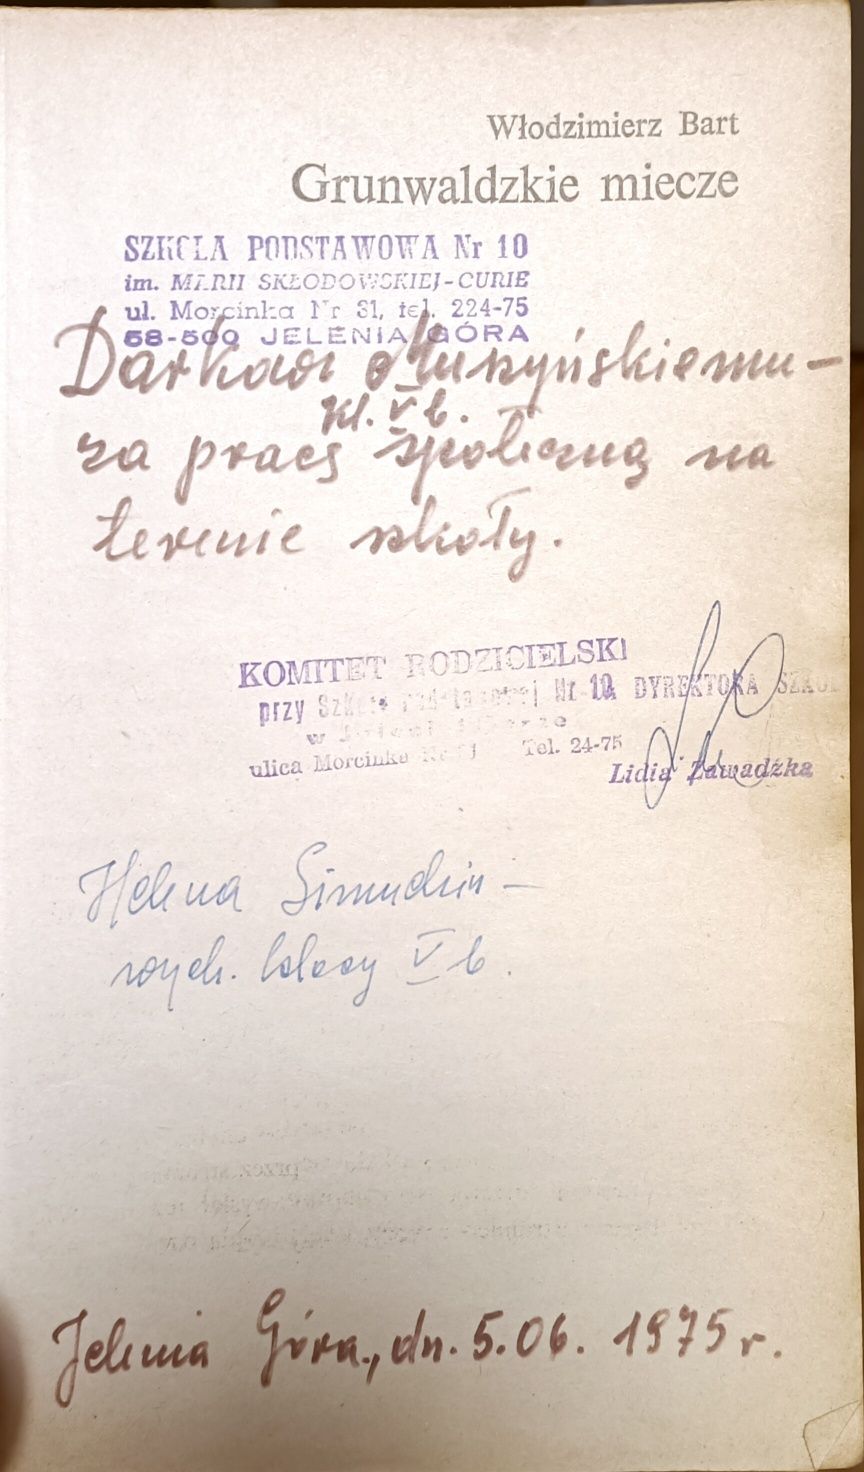 Włodzimierz Bart
Grunwaldzkie miecze
SZKOŁA PODSTAWOWA Nr 10
im. MARII SKŁODOWSKIEJ-CURIE
ul. Morcinka Nr 31, tel. 224-75
58-500 JELENIA GÓRA
Darkowi Muszyńskiemu -
kl. V b.
za pracę społeczną na
terenie szkoły.
KOMITET RODZICIELSKI
przy Szkole Podstawowej Nr 10
DYREKTORA
w
ulica Morcinka Tel. 24-75
Lidia Zawadzka
Helena -
wych. klasy V b.
Jelenia Góra, dn. 5.06. 1975 r.